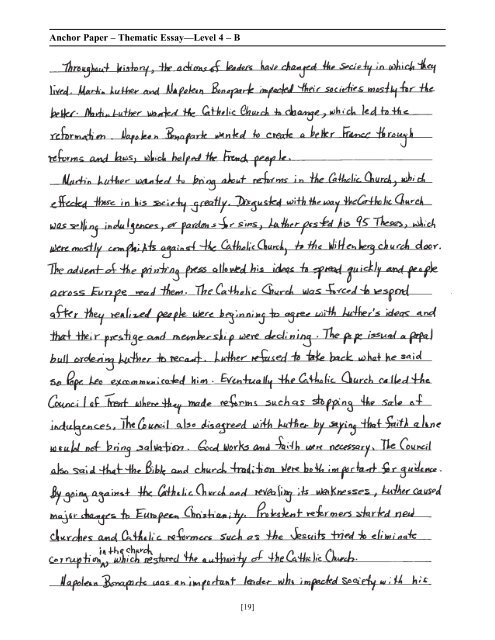 Anchor Paper – Thematic Essay—Level 4 – B
Throughout history, the actions of leaders have changed the society in which they
lived. Martin Luther and Napoleon Bonaparte impacted their societies mostly for the
better. Martin Luther wanted the Catholic Church to change, which led to the
reformation. Napoleon Bonaparte wanted to create a better France through
reforms and laws, which helped the French people.
Martin Luther wanted to bring about reforms in the Catholic Church, which
effected those in his society greatly. Disgusted with the way the Catholic Church
was selling indulgences, or pardons for sins, Luther posted his 95 Theses, which
were mostly complaints against the Catholic Church, to the Wittenberg church door.
The advent of the printing press allowed his ideas to spread quickly and people
across Europe read them. The Catholic Church was forced to respond
after they realized people were beginning to agree with Luther's ideas and
that their prestige and membership were declining. The pope issued a papal
bull ordering Luther to recant. Luther refused to take back what he said
so Pope Leo excommunicated him. Eventually the Catholic Church called the
Council of Trent where they made reforms such as stopping the sale of
indulgences. The Council also disagreed with Luther by saying that faith alone
would not bring salvation. Good works and faith were necessary. The Council
also said that the Bible and church tradition were both important for guidence.
By going against the Catholic Church and revealing its weaknesses, Luther caused
major changes to European Christianity. Protestent reformers started new
churches and Catholic reformers such as the Jesuits tried to eliminate
corruption in the church, which restored the authority of the Catholic Church.
Napoleon Bonaparte was an important leader who impacted society with his
[19]